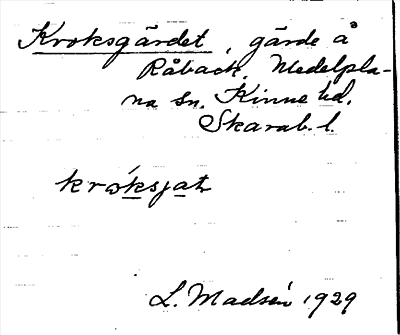 Kroksgärdet, gärde å
Råback, Medelpla-
na sn. Kinne hd.
Skarab. l.
L. Madsén 1929